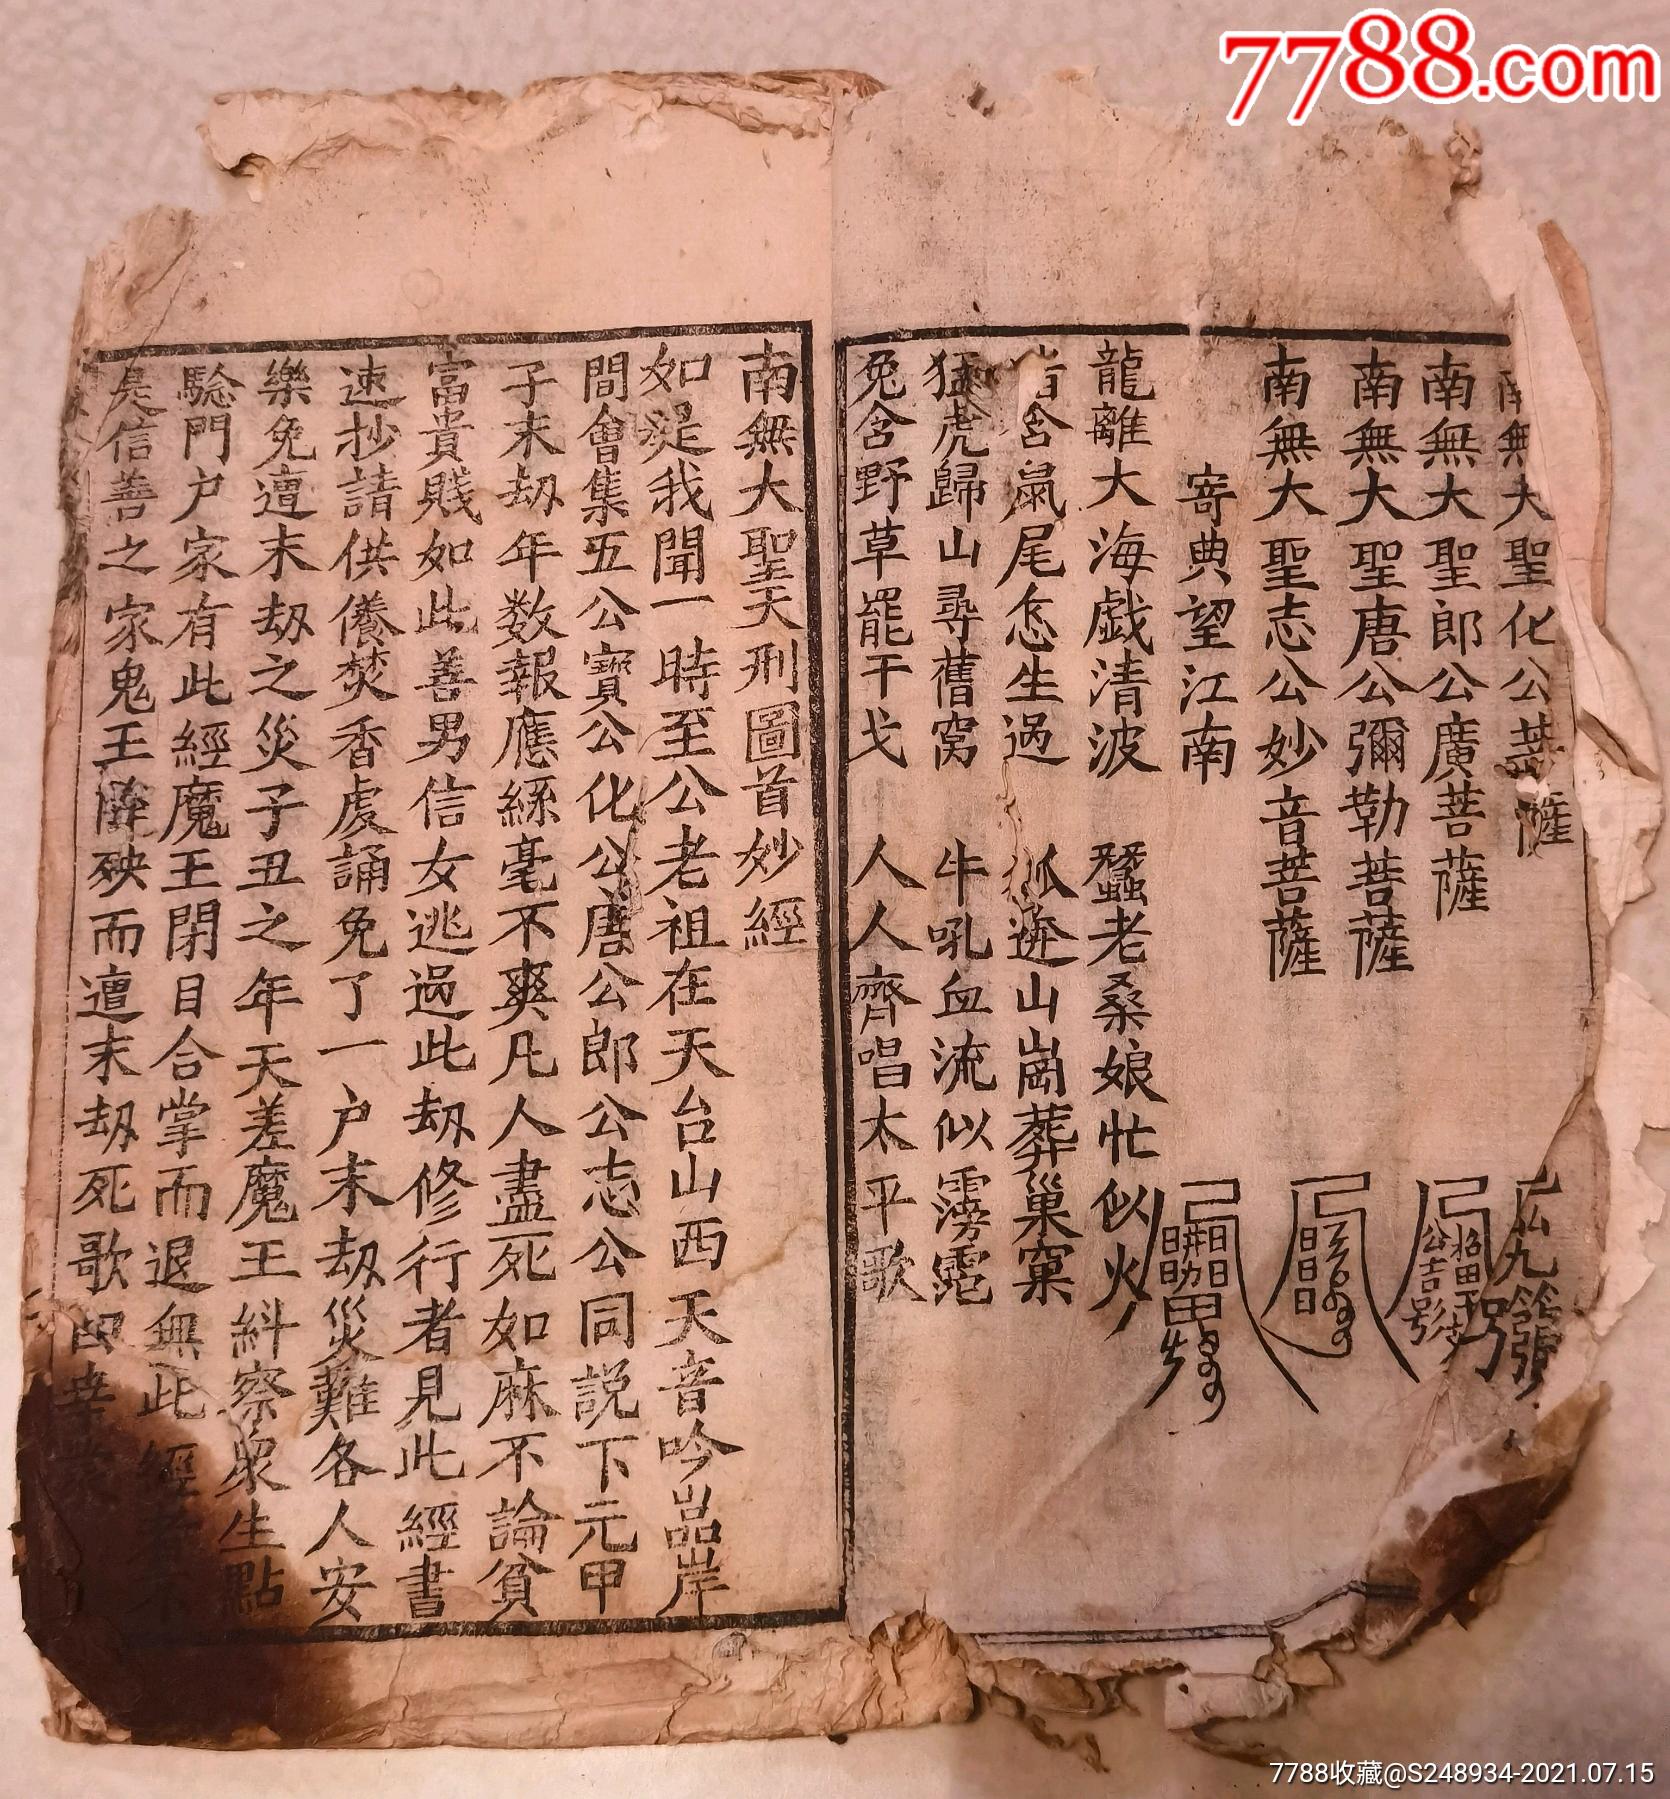 7788.com
南無大聖化公菩薩
南無大聖郎公廣菩薩
南無大聖唐公彌勒菩薩
南無大聖志公妙音菩薩
寄典望江南
龍離大海戯清波 蠶老桑娘忙似火
含鼠尾忩生過 山崗葬巢窠
猛虎歸山尋舊窩 牛吼血流似霶霓
兔含野草罷干戈 人人齊唱太平歌
南無大聖天刑圖首妙經
如是我聞一時至公老祖在天台山西天音吟嵒岸
間會集五公寶公化公唐公郎公志公同説下元甲
子末劫年数報應絲毫不爽凡人盡死如麻不論貧
富貴賤如此善男信女逃過此劫修行者見此經書
速抄請供儀焚香處誦免了一户末劫災難各人安
樂免遭末劫之災子丑之年天差魔王糾察衆生點
騐門户家有此經魔王閉目合掌而退無此經
是信善之家鬼王降殃而遭末劫死歌曰
7788收藏@S248934-2021.07.15